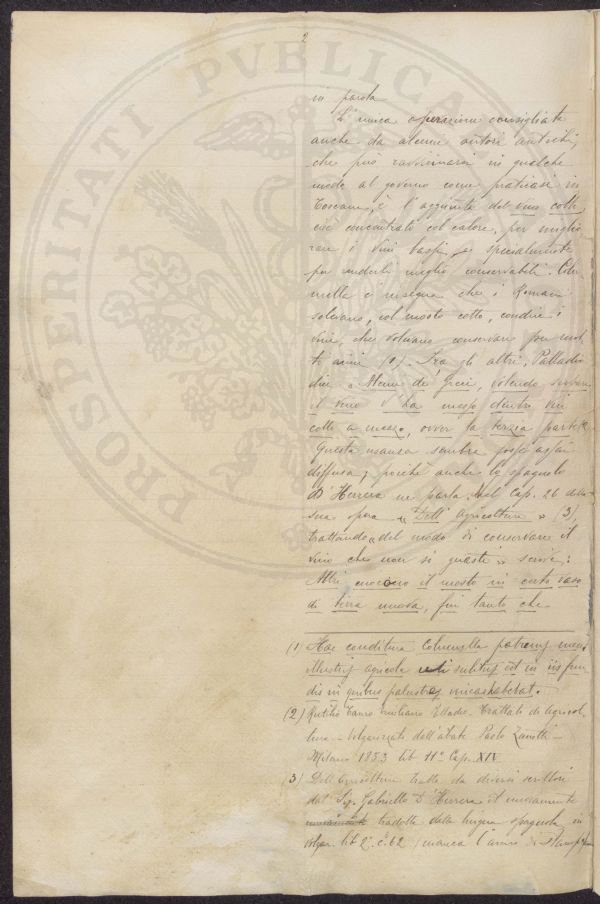 2
in parola
L'unica operazione consigliata
anche da alcuni autori antichi,
che può ravvicinarsi in qualche
modo al governo come praticasi in
Toscana, è l'aggiunta del vino cotto,
cioè concentrato col calore, per miglio
rare i vini bassi, e specialmente
per renderli meglio conservabili. Colu
mella c'insegna che i Romani
solevano, col mosto cotto, condire i
vini, che volevano conservare per mol
ti anni (1). Fra gli altri, Palladio
dice "Alcuni de' Greci, volendo serbare
il vino v'ha messo dentro vin
cotto a mezzo, ovver la terzia parte"
Questa usanza sembra fosse assai
diffusa; poichè anche lo spagnolo
D'Herrera ne parla. Nel Cap. 26 della
sua opera "Dell'Agricoltura" (3),
trattando "del modo di conservare il
vino che non si guasti" scrive:
Altri cuocono il mosto in certo vaso
di terra nuova, fin tanto che
(1) Hac conditura Columella patruus meus
Marcus agricola uti solitus est in iis fun
dis in quibus palustres vineas habebat.
(2) Rutilio Tauro Emiliano Palladio - Trattato di Agricol
tura - Volgarizzato dall'abate Paolo Zanotti -
Milano 1853 lib 11° Cap. XIV
(3) Dell'Agricoltura tratta da diversi scrittori
dal Sig. Gabriello D'Herrera et nuovamente
tradotta dalla lingua spagnola in
volgar. lib 2° c. 62 (manca l'anno di stampa)
PROSPERITATI PVBLICAE